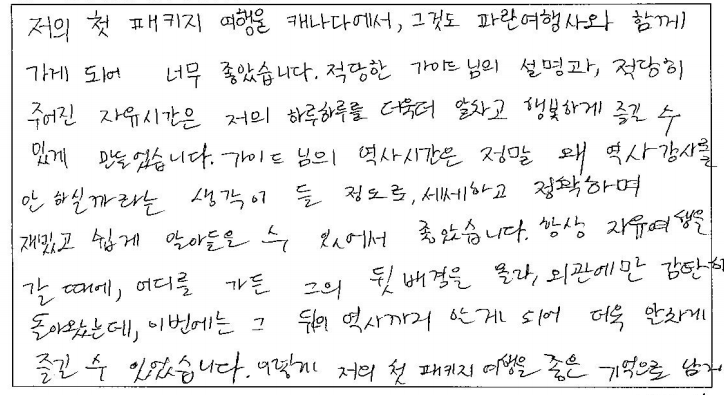 저의 첫 패키지 여행을 캐나다에서, 그것도 파란여행사와 함께
가게 되어 너무 좋았습니다. 적당한 가이드님의 설명과, 적당히
주어진 자유시간은 저의 하루하루를 더욱더 알차고 행복하게 즐길 수
있게 만들었습니다. 가이드 님의 역사시간은 정말 왜 역사강사를
안 하실까라는 생각이 들 정도로, 세세하고 정확하며
재밌고 쉽게 알아들을 수 있어서 좋았습니다. 항상 자유여행을
갈 때에, 어디를 가든 그의 뒷 배경을 몰라, 외관에만 감탄하
돌아왔는데, 이번에는 그 뒤의 역사까지 알게 되어 더욱 알차게
즐길 수 있었습니다. 이렇게 저의 첫 패키지 여행을 좋은 기억으로 남겨